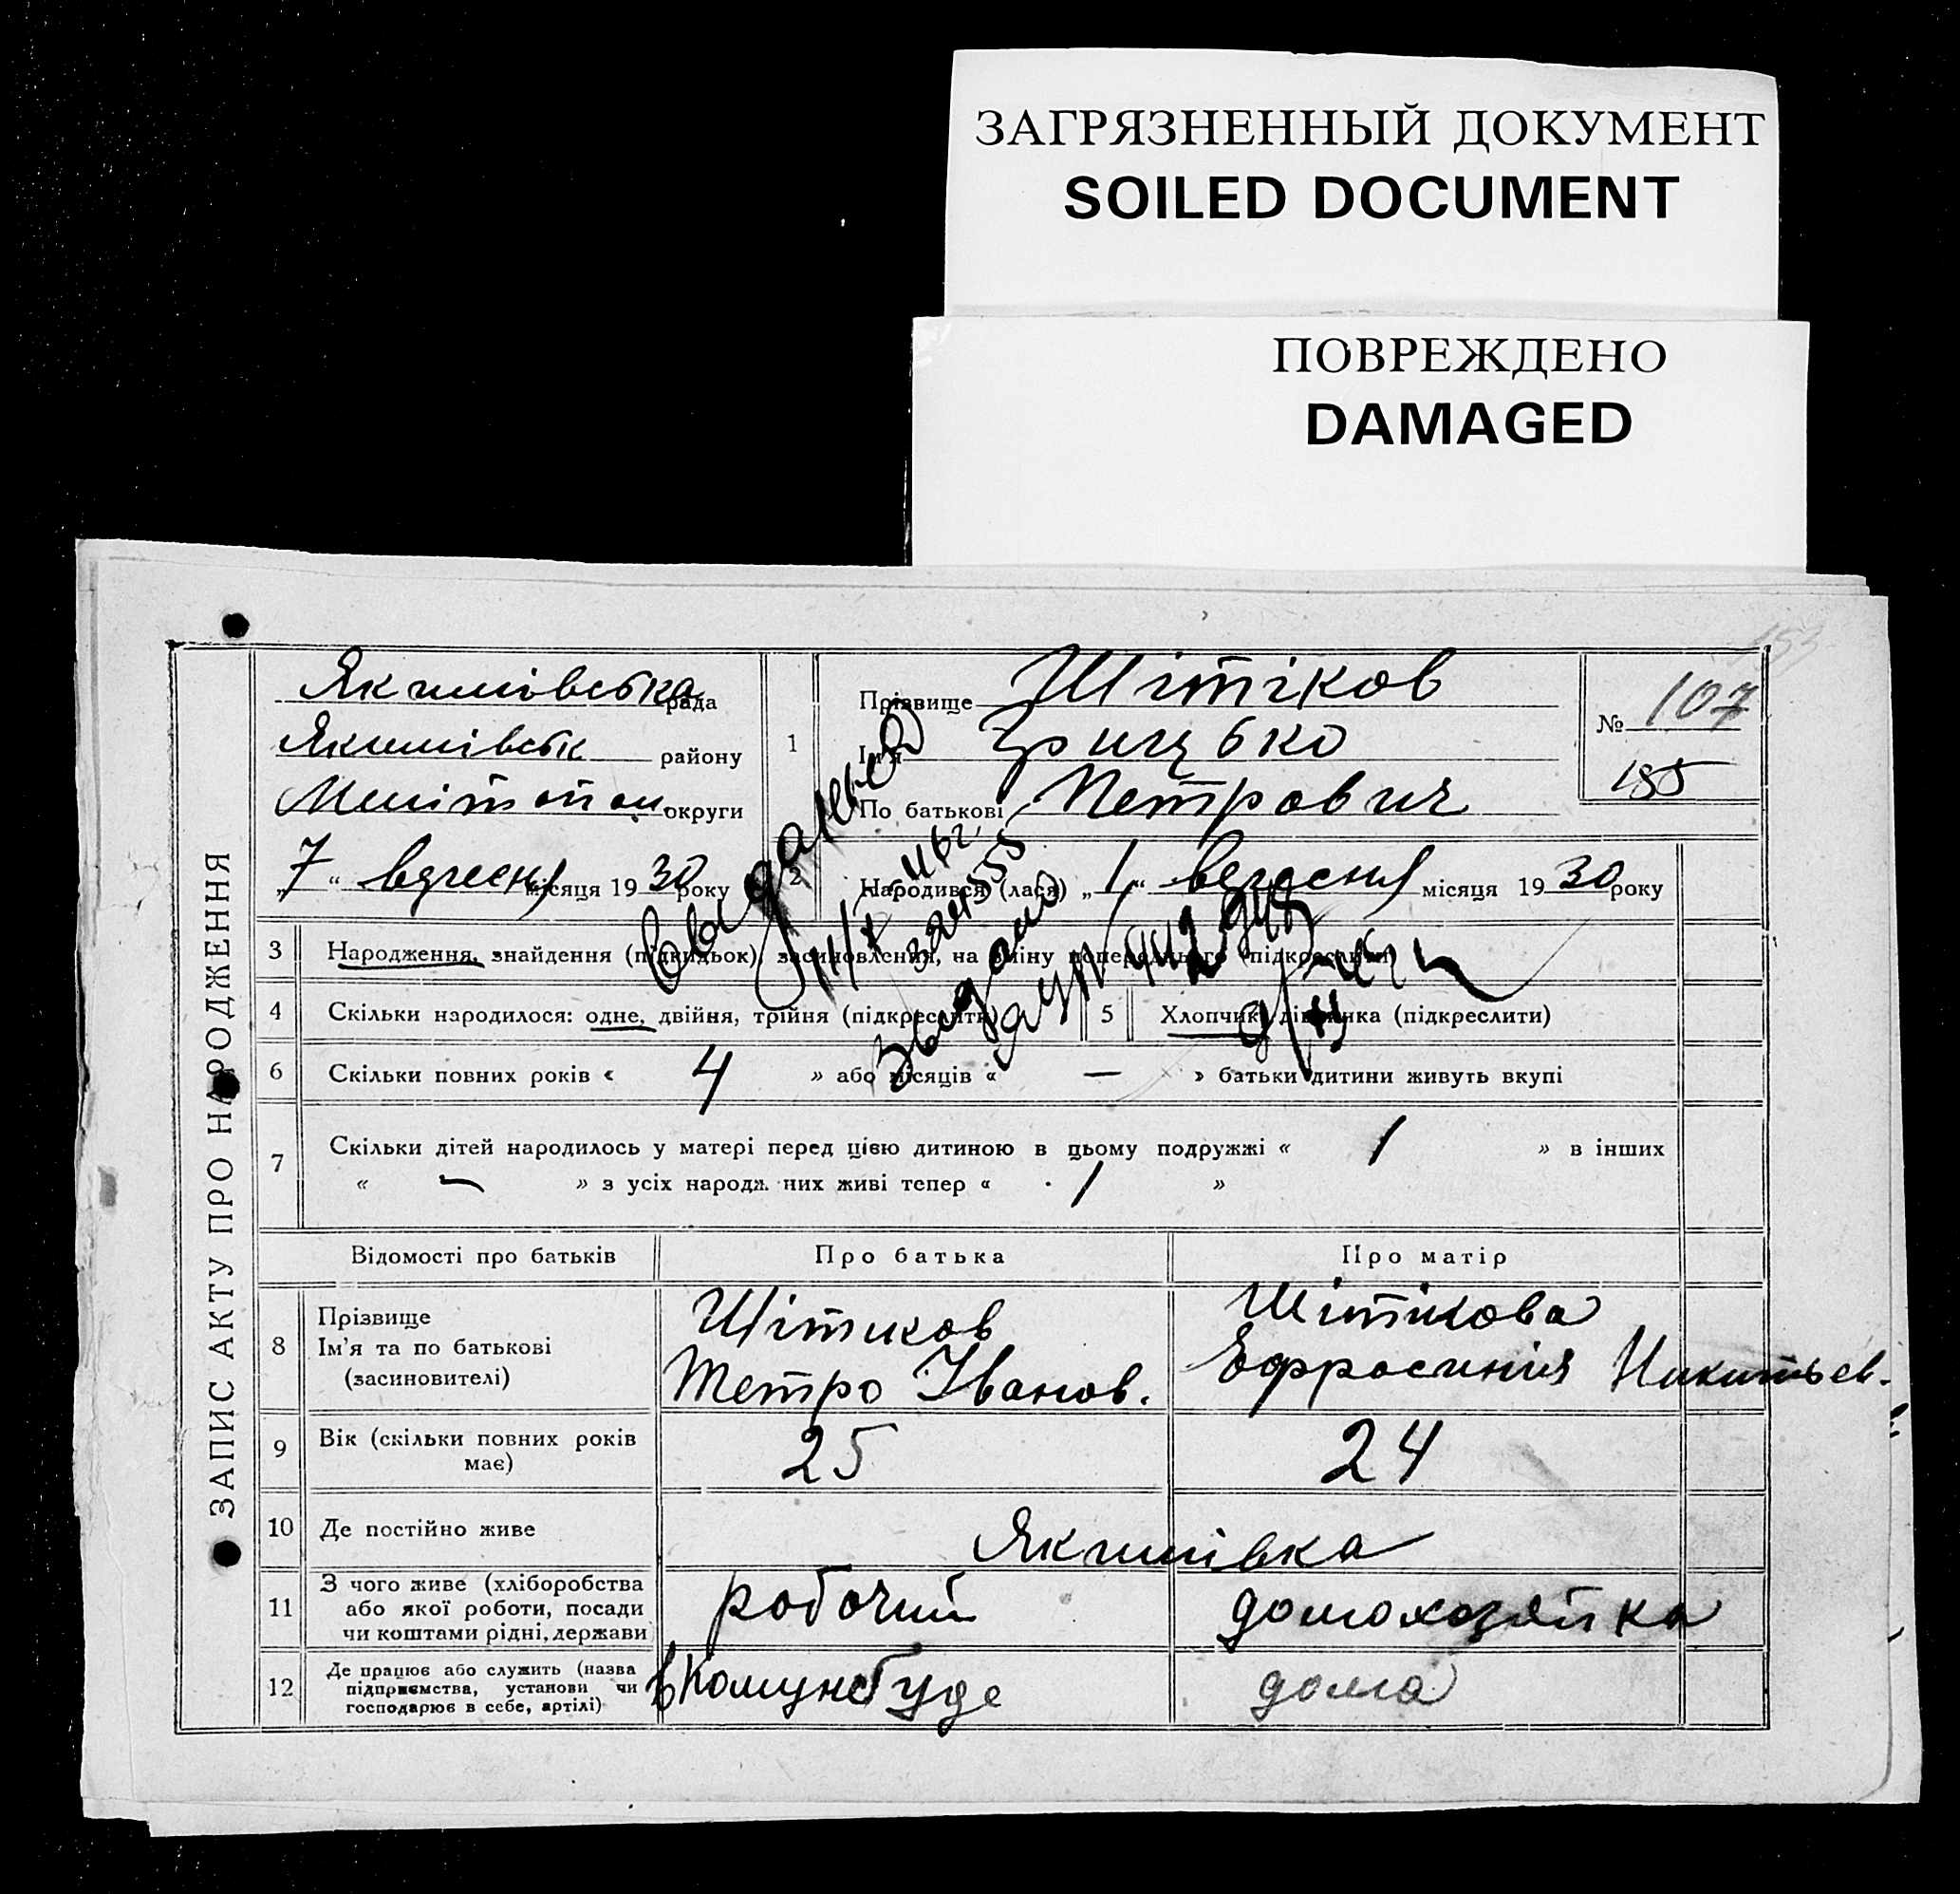 ЗАГРЯЗНЕННЫЙ ДОКУМЕНТ
SOILED DOCUMENT
ПОВРЕЖДЕНО
DAMAGED
ЗАПИС АКТУ ПРО НАРОДЖЕННЯ
Якимівська рада
Якимівськ району
Мелітопол округи
„7“ вересня місяця 1930 року
1
Прізвище Шітіков
Ім'я Грицько
По батькові Петрович
№ 107
185
153
2 Народився (лася) „1“ вересня місяця 1930 року
3 Народження, знайдення (підкидьок), засиновлення, на зміну попереднього (підкреслити)
4 Скільки народилося: одне, двійня, трійня (підкреслити)
5 Хлопчик, дівчинка (підкреслити)
6 Скільки повних років « 4 » або місяців « — » батьки дитини живуть вкупі
7 Скільки дітей народилось у матері перед цією дитиною в цьому подружжі « 1 » в інших
« — » з усіх народж них живі тепер « 1 »
Відомості про батьків Про батька Про матір
8 Прізвище
Ім'я та по батькові
(засиновителі)
Шітиков
Петро Іванов.
Шітікова
Ефросинія Никитьев.
9 Вік (скільки повних років
має)
25 24
10 Де постійно живе Якимівка
11 З чого живе (хліборобства
або якої роботи, посади
чи коштами рідні, держави
робочий домохозяйка
12 Де працює або служить (назва
підприємства, установи чи
господарює в себе, артілі)
в Комунбуде дома